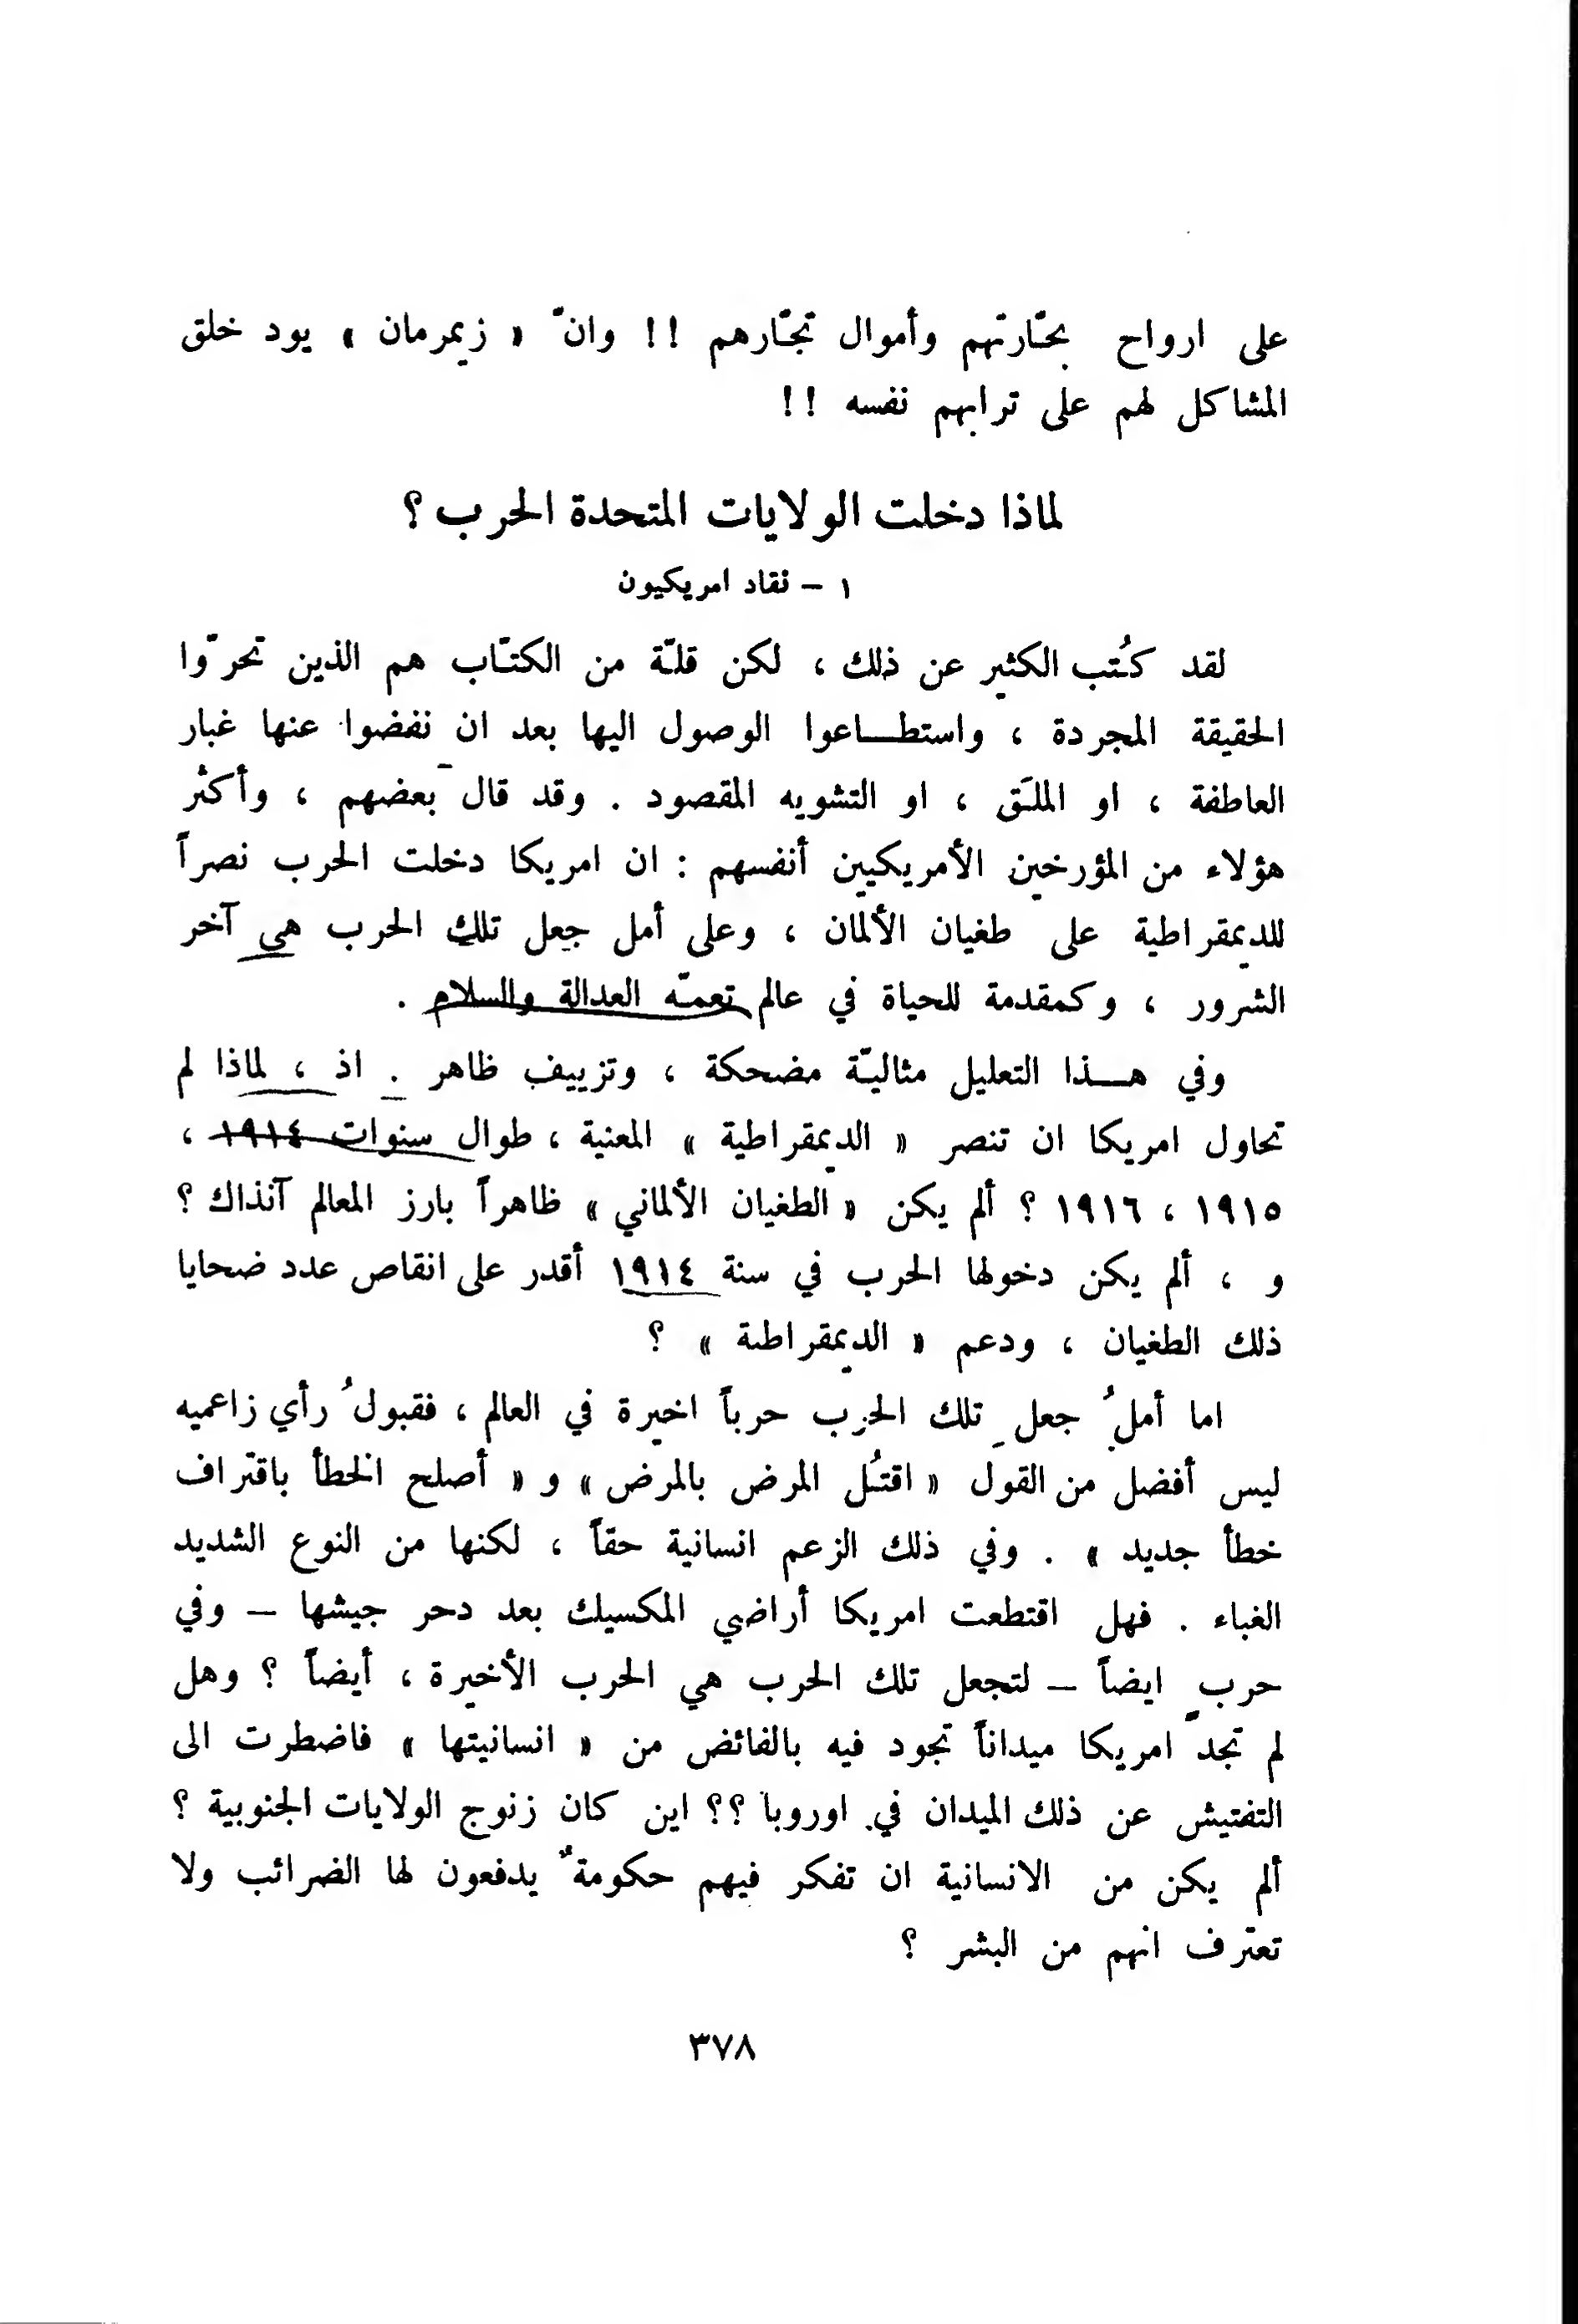 على ارواح بحّارتهم وأموال تجّارهم !! وانّ « زيمرمان » يود خلق
المشاكل لهم على ترابهم نفسه !!
لماذا دخلت الولايات المتحدة الحرب ؟
١ – نقاد امريكيون
لقد كُتب الكثير عن ذلك ، لكن قلّة من الكتّاب هم الذين تحرّوا
الحقيقة المجردة ، واستطاعوا الوصول اليها بعد ان نفضوا عنها غبار
العاطفة ، او الملَق ، او التشويه المقصود . وقد قال بعضهم ، وأكثر
هؤلاء من المؤرخين الأمريكيين أنفسهم : ان امريكا دخلت الحرب نصراً
للديمقراطية على طغيان الألمان ، وعلى أمل جعل تلك الحرب هي آخر
الشرور ، وكمقدمة للحياة في عالم تعمّه العدالة والسلام .
وفي هذا التعليل مثاليّة مضحكة ، وتزييف ظاهر . اذ ، لماذا لم
تحاول امريكا ان تنصر « الديمقراطية » المعنية ، طوال سنوات ١٩١٤ ،
١٩١٥ ، ١٩١٦ ؟ ألم يكن « الطغيان الألماني » ظاهراً بارز المعالم آنذاك ؟
و ، ألم يكن دخولها الحرب في سنة ١٩١٤ أقدر على انقاص عدد ضحايا
ذلك الطغيان ، ودعم « الديمقراطية » ؟
اما أملُ جعلِ تلك الحرب حرباً اخيرة في العالم ، فقبولُ رأي زاعميه
ليس أفضل من القول « اقتُل المرض بالمرض » و « أصلح الخطأ باقتراف
خطأ جديد » . وفي ذلك الزعم انسانية حقاً ، لكنها من النوع الشديد
الغباء . فهل اقتطعت امريكا أراضي المكسيك بعد دحر جيشها – وفي
حربٍ ايضاً – لتجعل تلك الحرب هي الحرب الأخيرة ، أيضاً ؟ وهل
لم تجد امريكا ميداناً تجود فيه بالفائض من « انسانيتها » فاضطرت الى
التفتيش عن ذلك الميدان في اوروبا ؟؟ اين كان زنوج الولايات الجنوبية ؟
ألم يكن من الانسانية ان تفكر فيهم حكومةٌ يدفعون لها الضرائب ولا
تعترف انهم من البشر ؟
٣٧٨